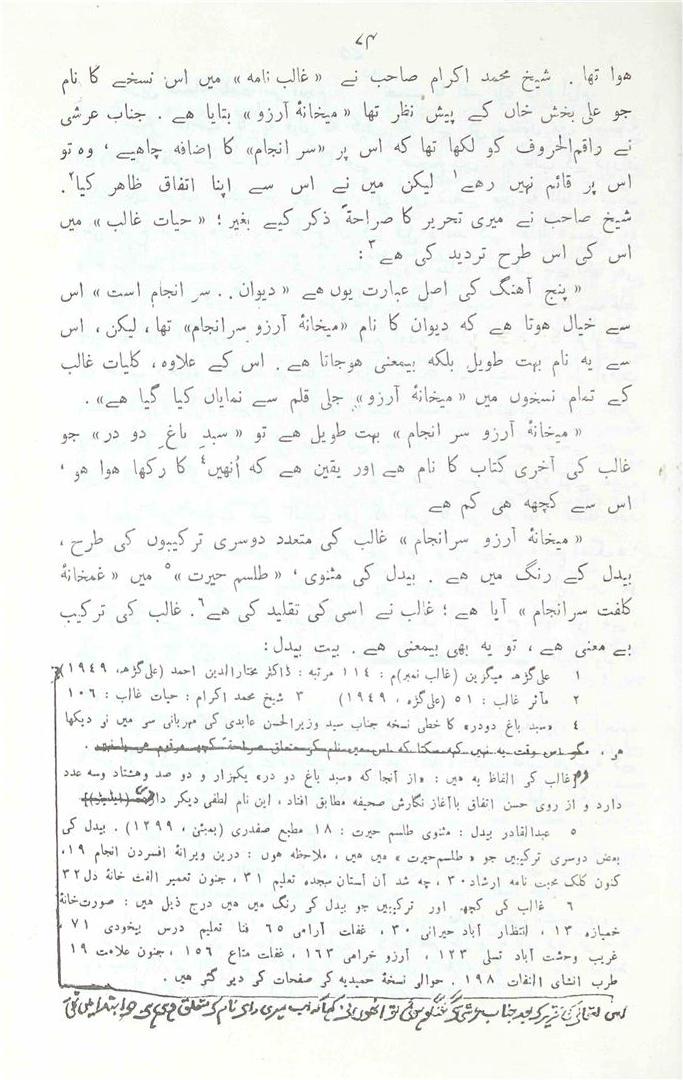 ۷۴
هوا تھا . شیخ محمد اکرام صاحب نے « غالب نامه » میں اس نسخے کا نام
جو علی بخش خاں کے پیش نظر تھا « میخانۂ آرزو » بتایا ہے . جناب عرشی
نے راقم‌الحروف کو لکھا تھا کہ اس پر «سر انجام» کا اضافہ چاہیے ، وہ تو
اس پر قائم نہیں رہے۱ لیکن میں نے اس سے اپنا اتفاق ظاہر کیا۲.
شیخ صاحب نے میری تحریر کا صراحةً ذکر کیے بغیر ؛ « حیات غالب » میں
اس کی اس طرح تردید کی ہے۳ :
« پنج آہنگ کی اصل عبارت یوں ہے « دیوان . . سر انجام است » اس
سے خیال ہوتا ہے کہ دیوان کا نام «میخانۂ آرزو سرانجام» تھا ، لیکن ، اس
سے یہ نام بہت طویل بلکہ بیمعنی ہوجاتا ہے . اس کے علاوہ، کلیات غالب
کے تمام نسخوں میں «میخانۂ آرزو» جلی قلم سے نمایاں کیا گیا ہے» .
« میخانۂ آرزو سر انجام » بہت طویل ہے تو « سبدِ باغِ دو در» جو
غالب کی آخری کتاب کا نام ہے اور یقین ہے کہ اُنھیں۴ کا رکھا ہوا ہو ،
اس سے کچھه ہی کم ہے
« میخانۂ آرزو سرانجام » غالب کی متعدد دوسری ترکیبوں کی طرح ،
بیدل کے رنگ میں ہے . بیدل کی مثنوی ، « طلسم حیرت »۵ میں « غمخانۂ
کلفت سرانجام » آیا ہے ؛ غالب نے اسی کی تقلید کی ہے۶. غالب کی ترکیب
بے معنی ہے ، تو یہ بھی بیمعنی ہے . بیت بیدل :
۱ علی‌گڑھ میگزین (غالب نمبر)م : ۱۱۴ مرتبہ : ڈاکٹر مختارالدین احمد (علی‌گڑھ، ۱۹۴۹)
۲ مآثر غالب : ۵۱ (علی‌گڑہ ، ۱۹۴۹) ۳ شیخ محمد اکرام : حیات غالب : ۱۰۶
۴ «سبد باغ دودر» کا خطی نسخہ جناب سید وزیرالحسن عابدی کی مہربانی سر میں نر دیکھا
هی ، مگر اس وقت یہ نہیں کہہ سکتا کہ اس میں نام کے متعلق صراحةً کچھ مرقوم ہے یا نہیں .
غالب کی الفاظ یہ هیں : «از آنجا که «سبد باغ دو در» یکہزار و دو صد وهشتاد وسه عدد
دارد و از روی حسن اتفاق باآغاز نگارش صحیفه مطابق افتاد ، این نام لطفی دیگر
۵ عبدالقادر بیدل : مثنوی طلسم حیرت : ۱۸ مطبع صفدری (بمبئی ، ۱۲۹۹) . بیدل کی
بعض دوسری ترکیبیں جو « طلسم‌حیرت » میں هیں ، ملاحظہ هوں : درین ویرانۂ افسردن انجام ۱۹،
کنون کلک محبت نامه ارشاد ۳۰ ، چه شد آن آستان سجده تعلیم ۳۱ ، جنون تعمیر الفت خانۂ دل ۳۲
۶ غالب کی کچھه اور ترکیبیں جو بیدل کی رنگ میں هیں درج ذیل هیں : صورت‌خانۂ
خمیازه ۱۳ ، انتظار آباد حیرانی ۳۰ ، غفلت آرامی ۶۵ فنا تعلیم درس بیخودی ۷۱ ،
غریب وحشت آباد تسلی ۱۲۳ ، آرزو خرامی ۱۶۳ ، غفلت متاع ۱۵۶ ، جنون علامت ۱۹
طرب انشای التفات ۱۹۸ . حوالی نسخۂ حمیدیہ کر صفحات کر دیو گئر هیں .